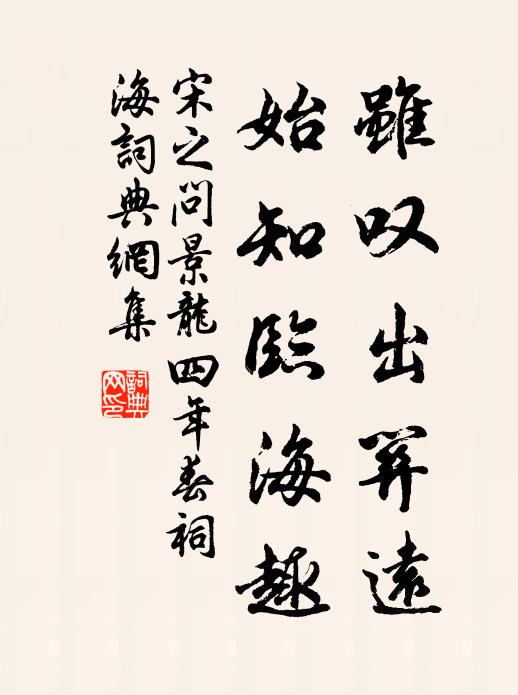 雖叹出関遠
始知臨海趣
宋之问景龍四年春祠
海詞典網集
詞典
网印